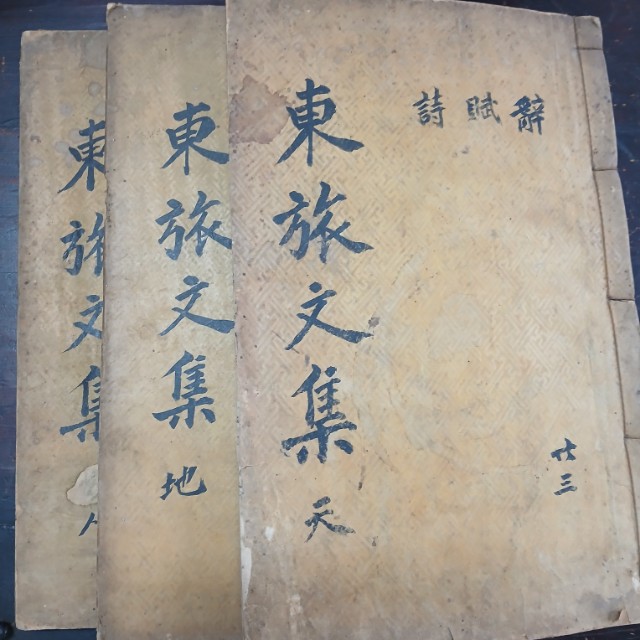 辭賦詩
共三
東旅文集 天
東旅文集 地
東旅文集 人